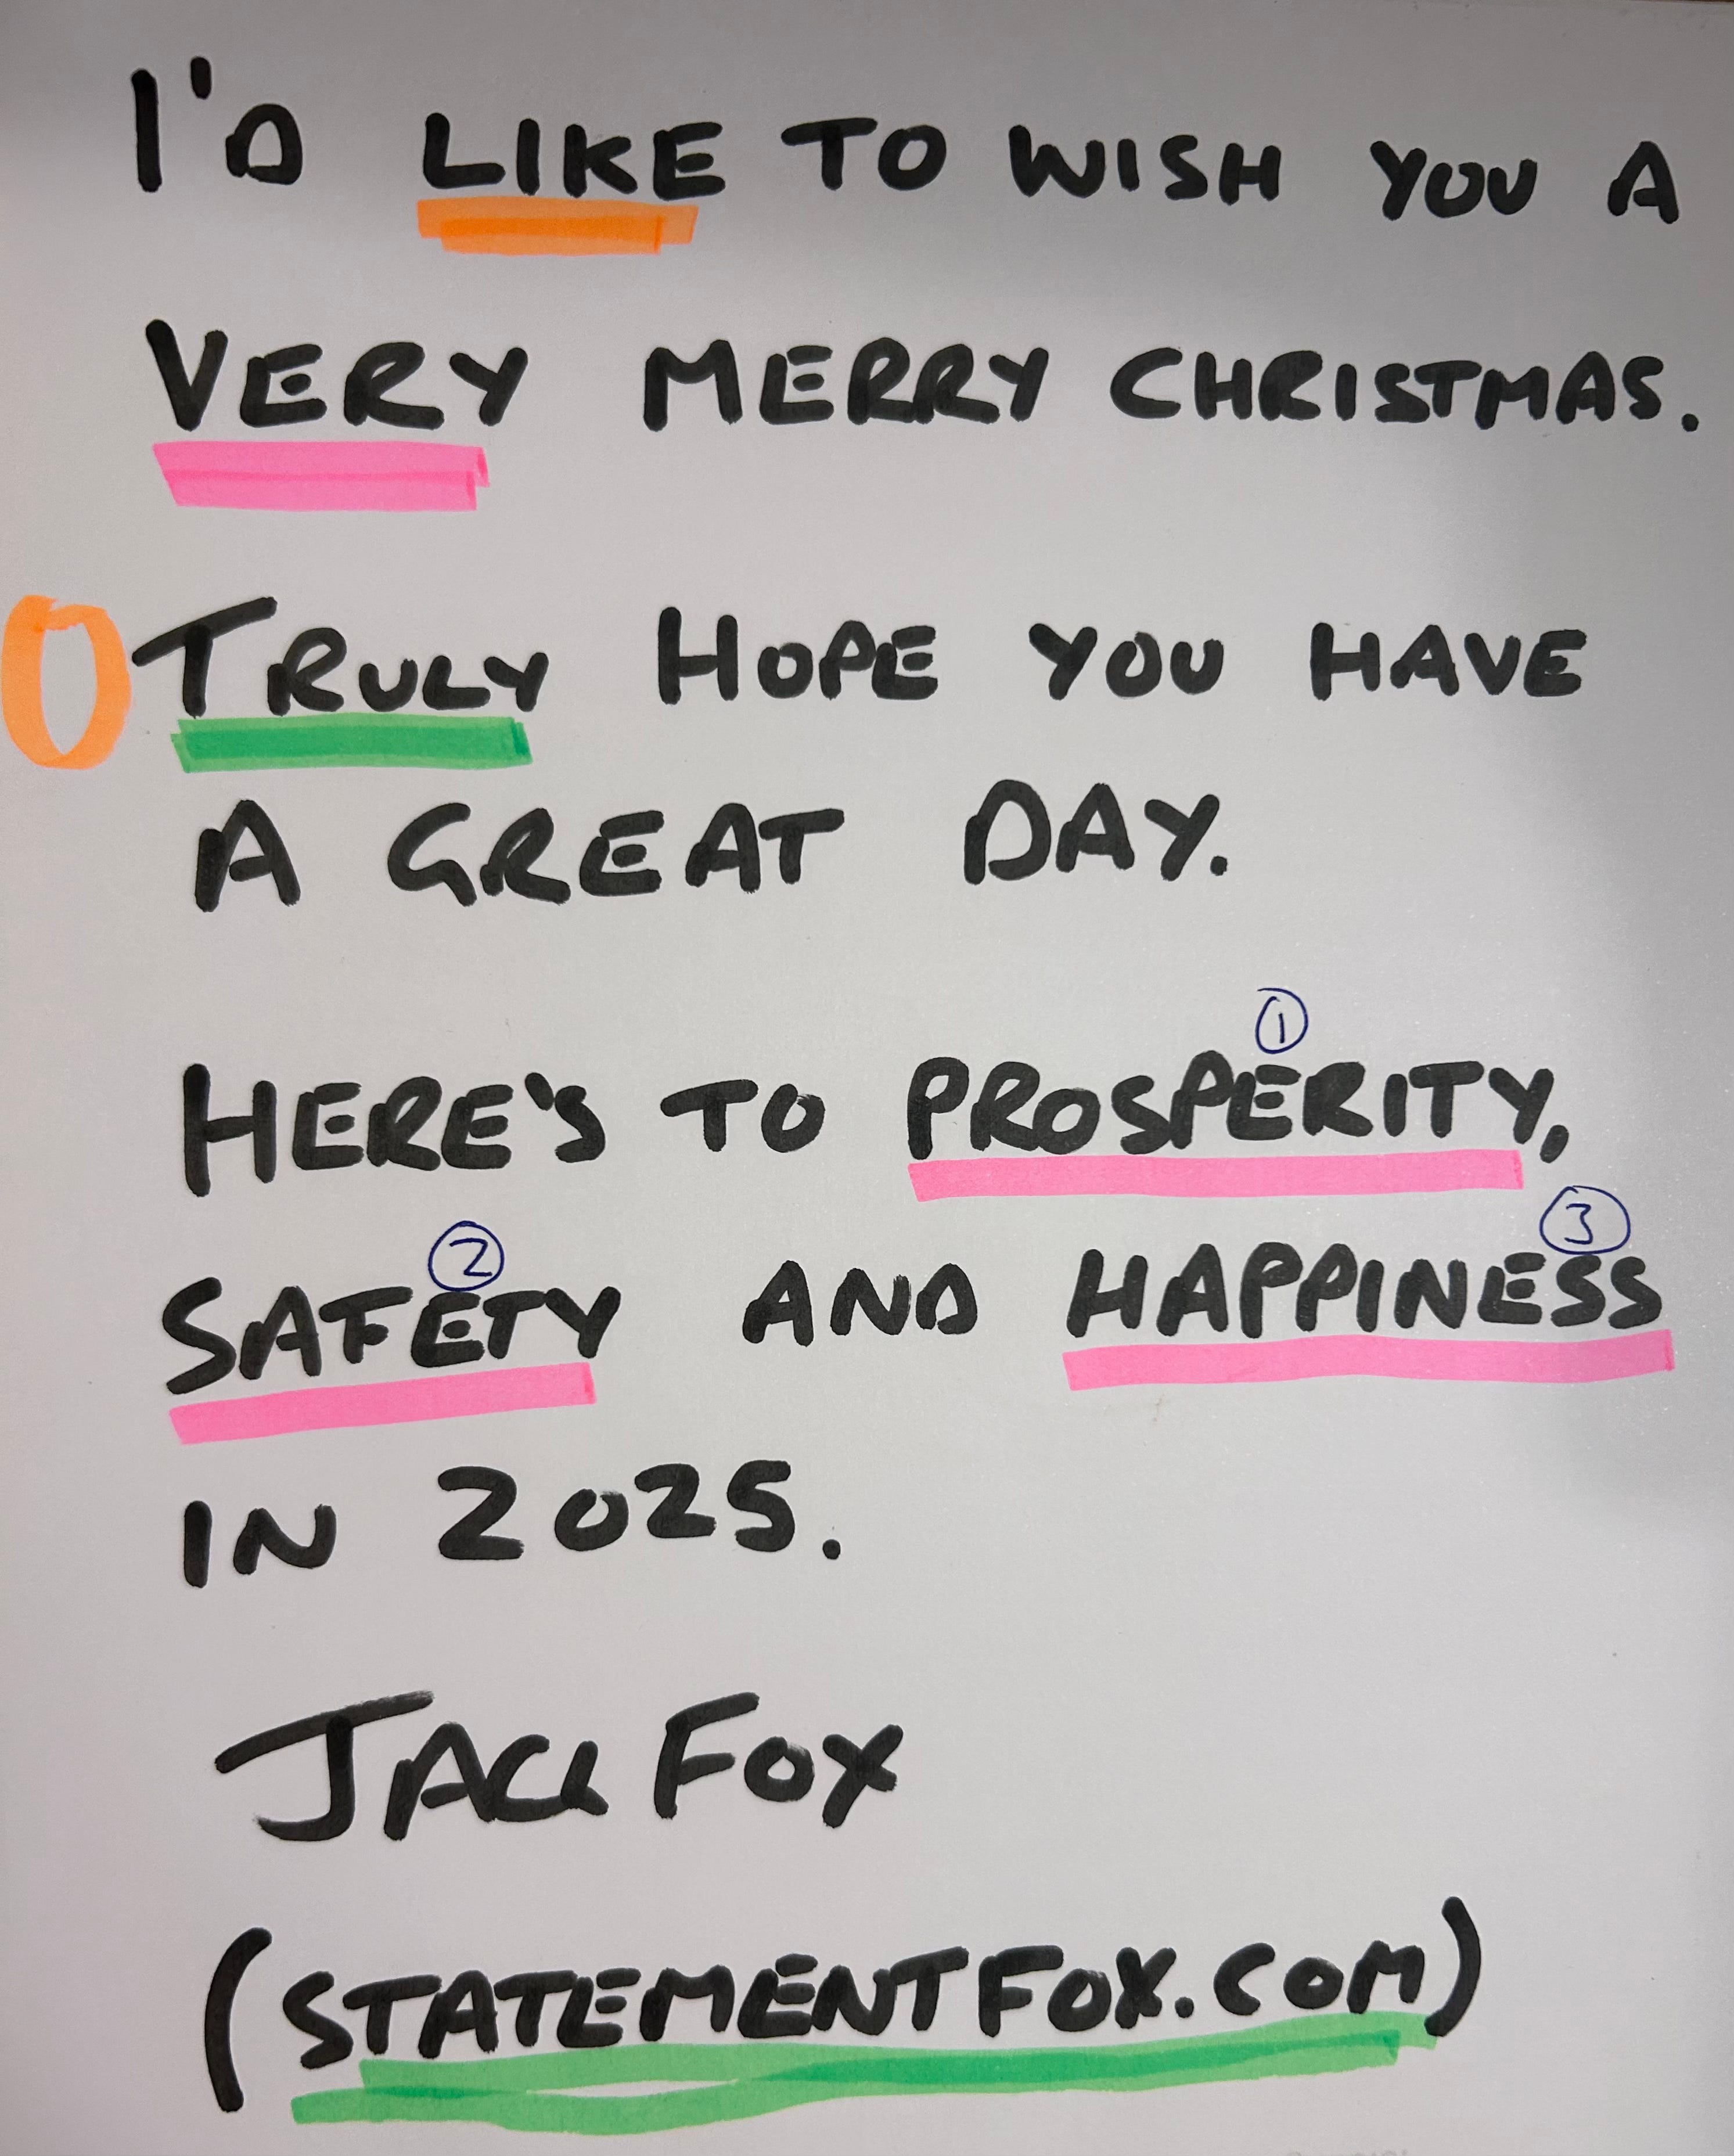 I'D LIKE TO WISH YOU A
VERY MERRY CHRISTMAS.
TRULY HOPE YOU HAVE
A GREAT DAY.
①
HERE'S TO PROSPERITY,
② ③
SAFETY AND HAPPINESS
IN 2025.
JACK FOX
(STATEMENTFOX.COM)